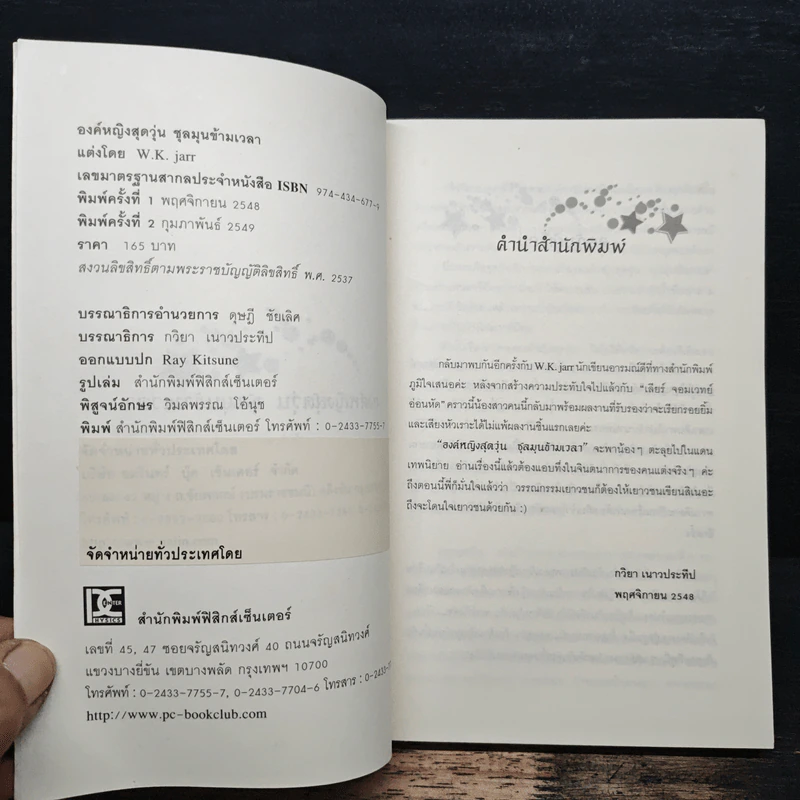 องค์หญิงสุดวุ่น ชุลมุนข้ามเวลา
แต่งโดย W.K. jarr
เลขมาตรฐานสากลประจำหนังสือ ISBN 974-434-677-9
พิมพ์ครั้งที่ 1 พฤศจิกายน 2548
พิมพ์ครั้งที่ 2 กุมภาพันธ์ 2549
ราคา 165 บาท
สงวนลิขสิทธิ์ตามพระราชบัญญัติลิขสิทธิ์ พ.ศ. 2537
บรรณาธิการอำนวยการ ดุษฎี ชัยเลิศ
บรรณาธิการ กวิยา เนาวประทีป
ออกแบบปก Ray Kitsune
รูปเล่ม สำนักพิมพ์ฟิสิกส์เซ็นเตอร์
พิสูจน์อักษร วิมลพรรณ โอ้นุช
พิมพ์ สำนักพิมพ์ฟิสิกส์เซ็นเตอร์ โทรศัพท์ : 0-2433-7755-7
จัดจำหน่ายทั่วประเทศโดย
PHYSICS CENTER
สำนักพิมพ์ฟิสิกส์เซ็นเตอร์
เลขที่ 45, 47 ซอยจรัญสนิทวงศ์ 40 ถนนจรัญสนิทวงศ์
แขวงบางยี่ขัน เขตบางพลัด กรุงเทพฯ 10700
โทรศัพท์ : 0-2433-7755-7, 0-2433-7704-6 โทรสาร :
http://www.pc-bookclub.com
คำนำสำนักพิมพ์
กลับมาพบกันอีกครั้งกับ W.K. jarr นักเขียนอารมณ์ดีที่ทางสำนักพิมพ์
ภูมิใจเสนอค่ะ หลังจากสร้างความประทับใจไปแล้วกับ “เลียร์ จอมเวทย์
อ่อนหัด” คราวนี้น้องสาวคนนี้กลับมาพร้อมผลงานที่รับรองว่าจะเรียกรอยยิ้ม
และเสียงหัวเราะได้ไม่แพ้ผลงานชิ้นแรกเลยค่ะ
“องค์หญิงสุดวุ่น ชุลมุนข้ามเวลา” จะพาน้องๆ ตะลุยไปในแดน
เทพนิยาย อ่านเรื่องนี้แล้วต้องแอบทึ่งในจินตนาการของคนแต่งจริงๆ ค่ะ
ถึงตอนนี้พี่ก็มั่นใจแล้วว่า วรรณกรรมเยาวชนก็ต้องให้เยาวชนเขียนสิเนอะ
ถึงจะโดนใจเยาวชนด้วยกัน :)
กวิยา เนาวประทีป
พฤศจิกายน 2548